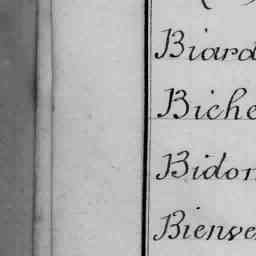 Biard
Biche
Bidon
Bienve